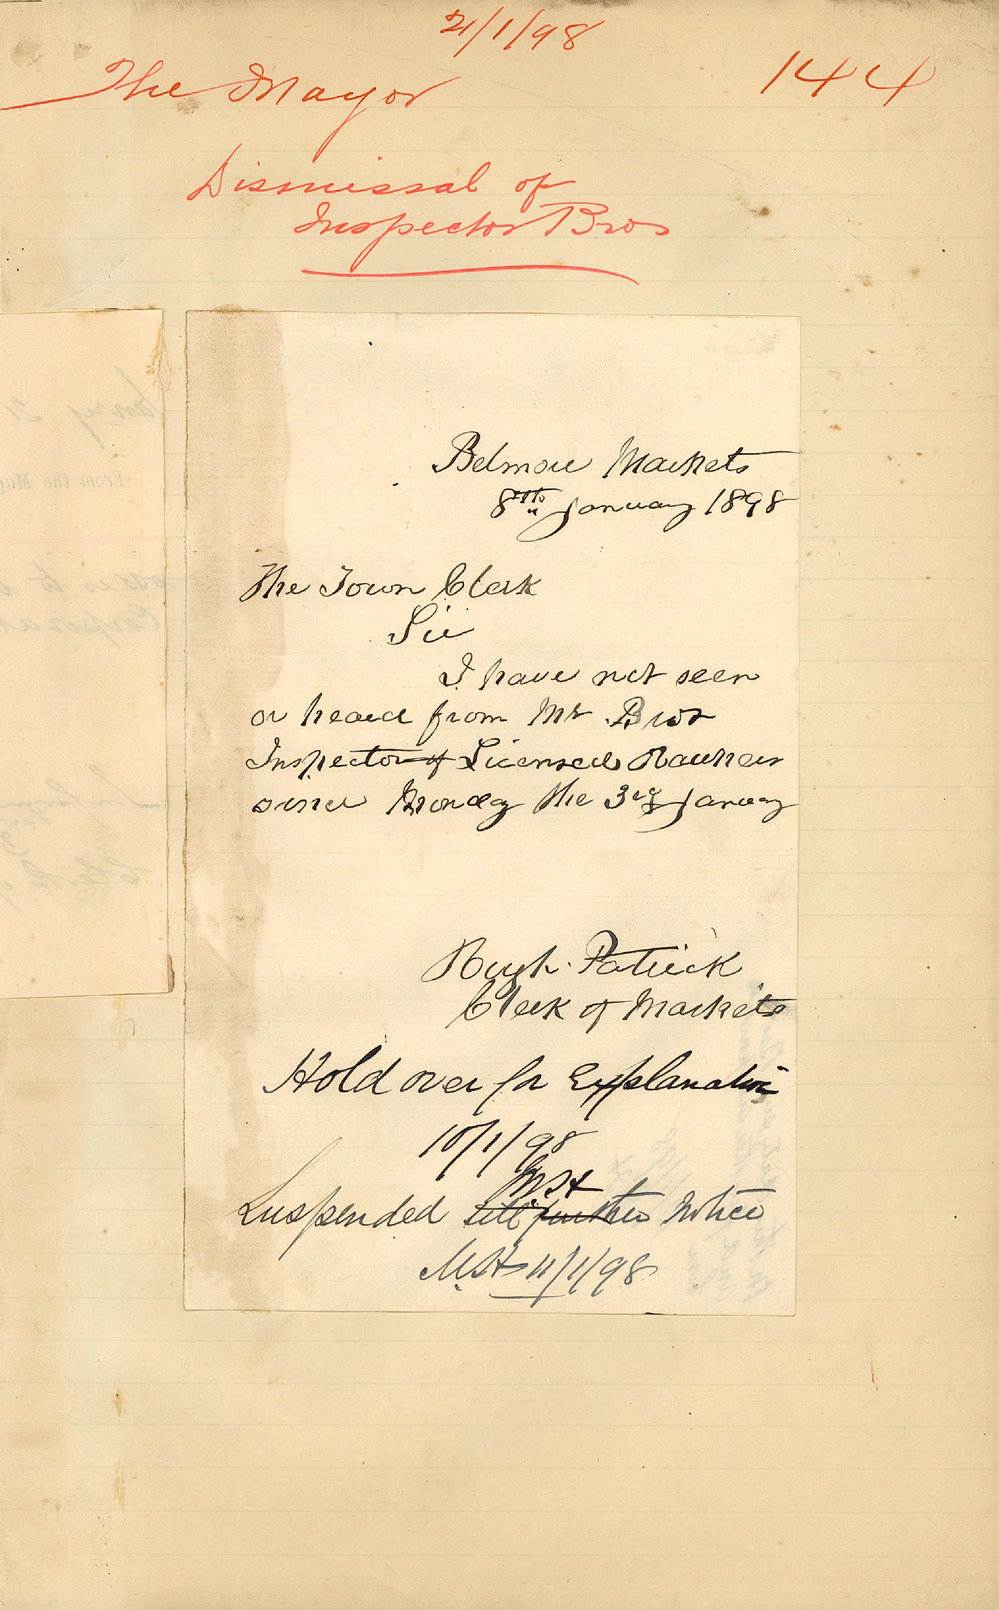 21/1/98
The Mayor
144
Dismissal of
Inspector Bros
Belmore Markets
8th January 1898
The Town Clerk
Sir
I have not seen
or heard from Mr Bros
Inspector of Licensed Hawkers
since Monday the 3rd January
Hugh Patrick
Clerk of Markets
Hold over for Explanation
10/1/98
Suspended till further Notice
11/1/98
From the May